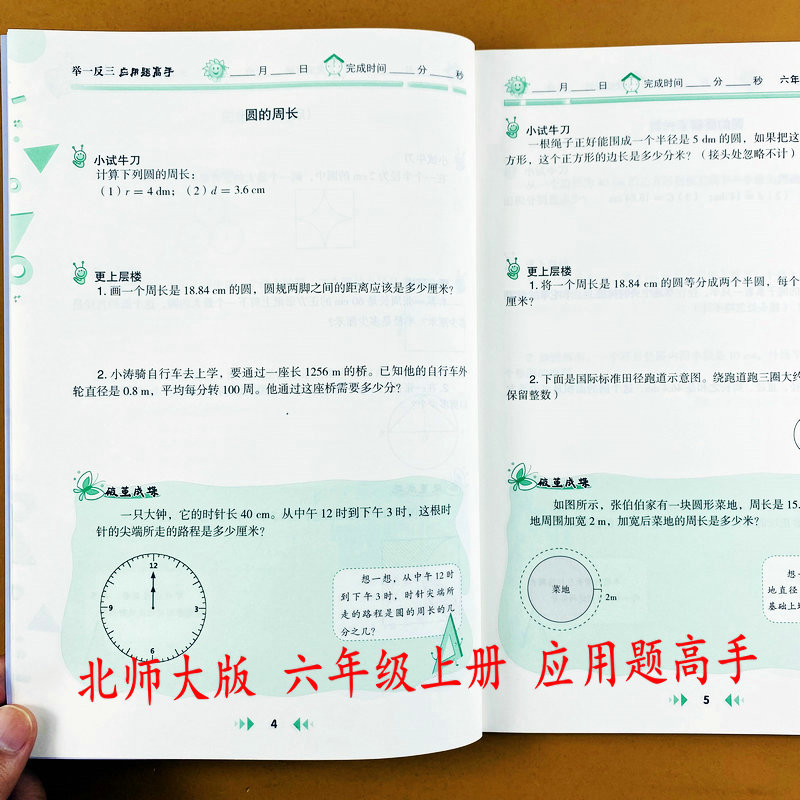 举一反三 应用题高手
____月____日 完成时间____分____秒
圆的周长
小试牛刀
计算下列圆的周长：
（1）r = 4 dm；（2）d = 3.6 cm
更上层楼
1. 画一个周长是 18.84 cm 的圆，圆规两脚之间的距离应该是多少厘米？
2. 小涛骑自行车去上学，要通过一座长 1256 m 的桥。已知他的自行车外
轮直径是 0.8 m，平均每分转 100 周。他通过这座桥需要多少分？
破茧成蝶
一只大钟，它的时针长 40 cm。从中午 12 时到下午 3 时，这根时
针的尖端所走的路程是多少厘米？
12
9
3
6
想一想，从中午 12 时
到下午 3 时，时针尖端所
走的路程是圆的周长的几
分之几？
4
____月____日 完成时间____分____秒
六年
小试牛刀
一根绳子正好能围成一个半径是 5 dm 的圆，如果把这
方形，这个正方形的边长是多少分米？（接头处忽略不计）
更上层楼
1. 将一个周长是 18.84 cm 的圆等分成两个半圆，每个
厘米？
2. 下面是国际标准田径跑道示意图。绕跑道跑三圈大约
保留整数）
破茧成蝶
如图所示，张伯伯家有一块圆形菜地，周长是 15.
地周围加宽 2 m，加宽后菜地的周长是多少米？
菜地
2m
想一
地直径
基础上增
5
北师大版 六年级上册 应用题高手